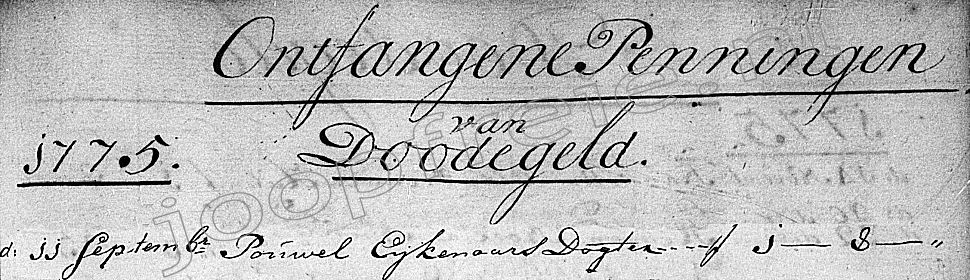 Ontfangene Penningen
van
1775. Doodegeld.
d: 11 Septembr Pouwel Eijkenaars Dogter - - - - f 1 — 8 — „